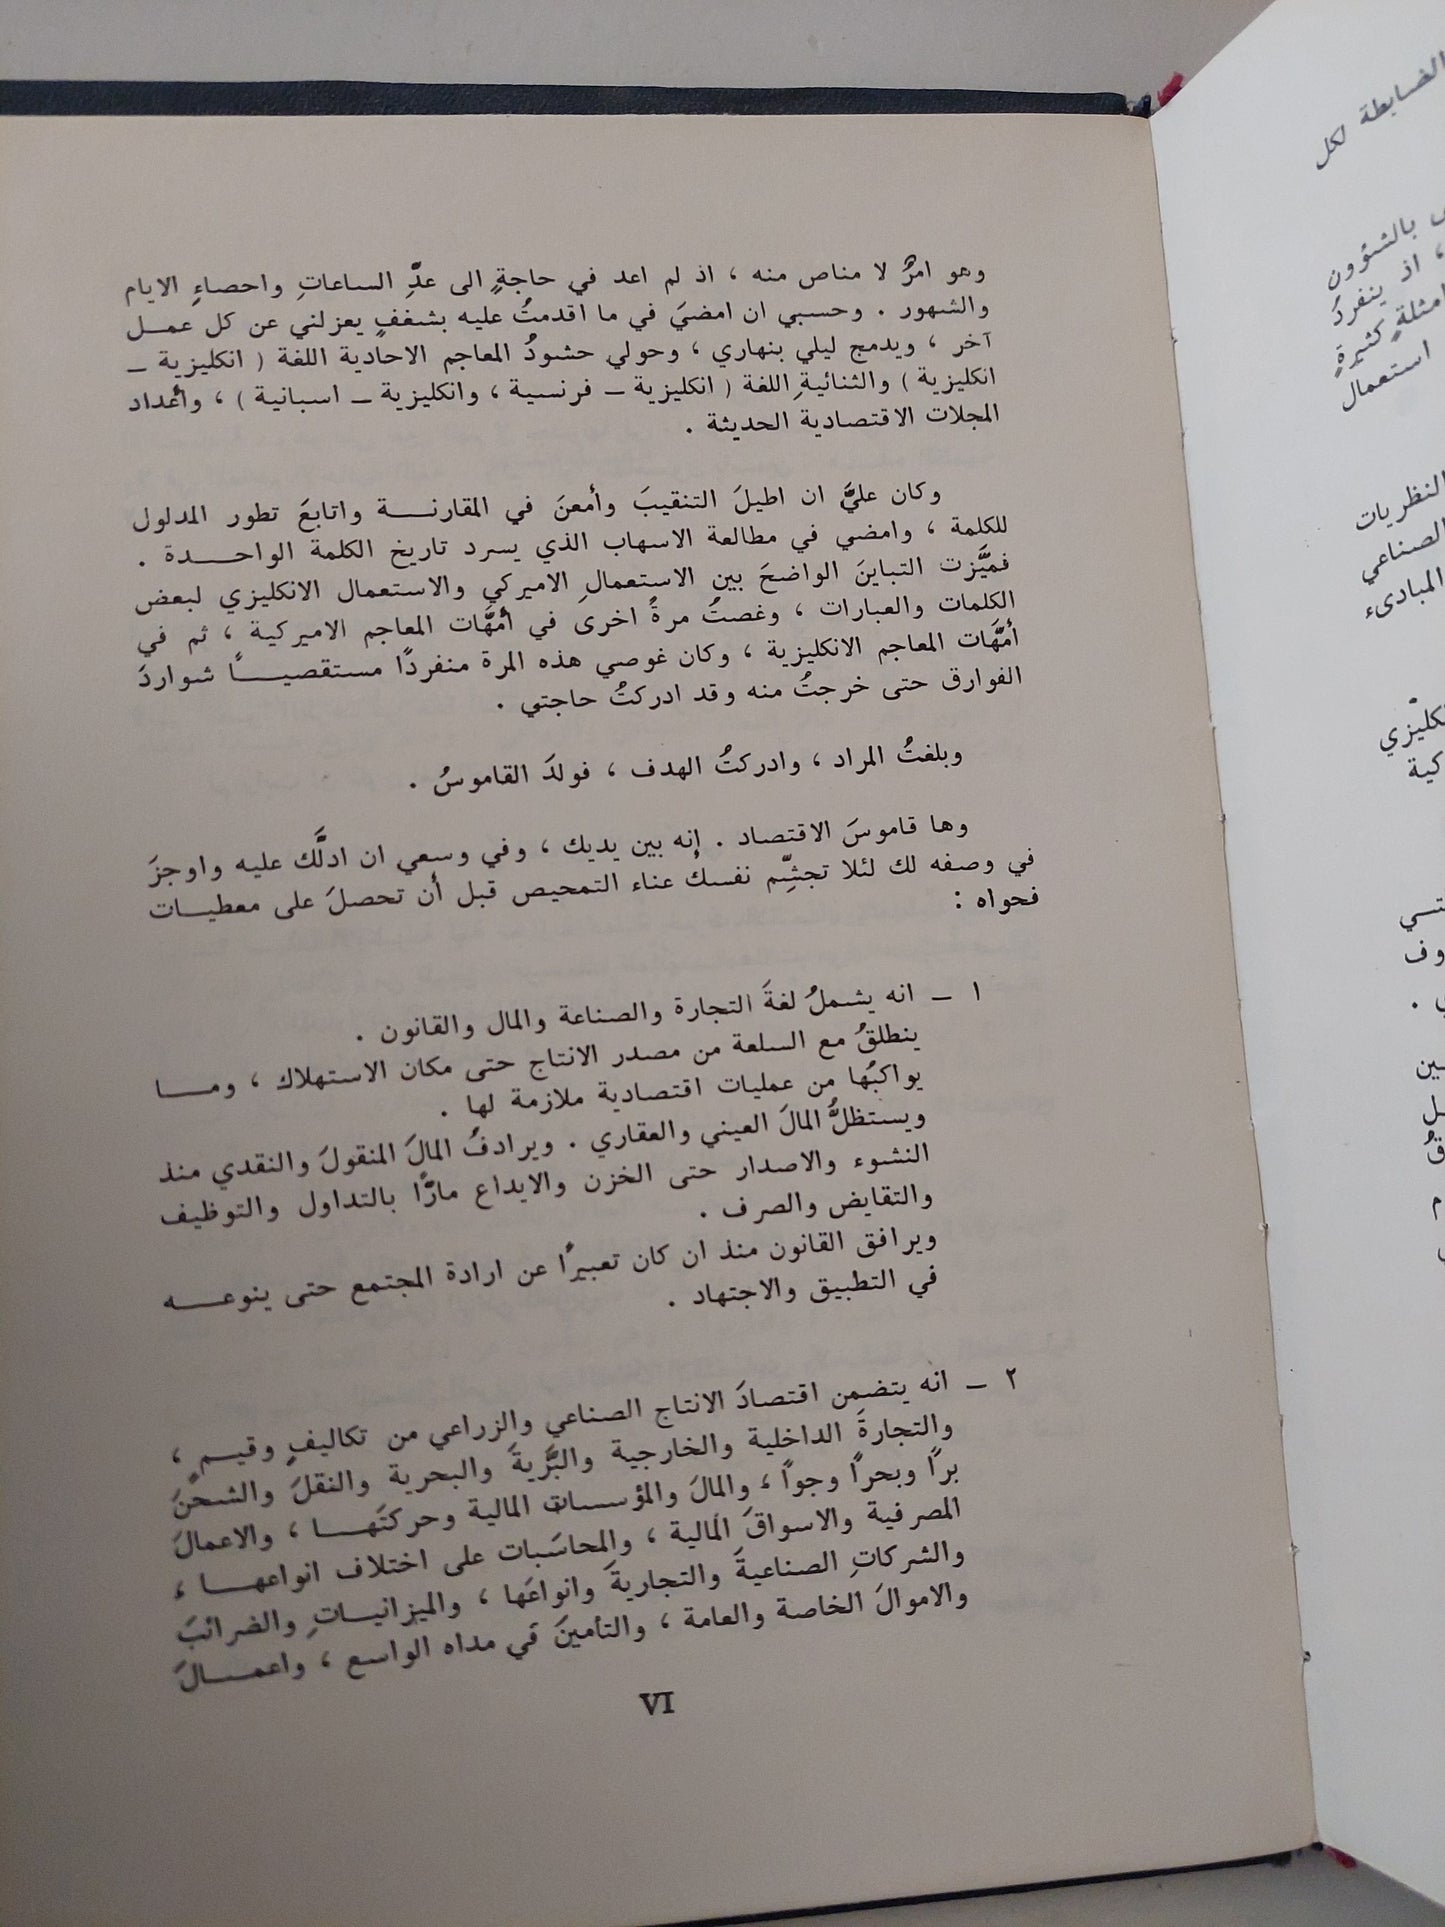 وهو امرٌ لا مناص منه ، اذ لم اعد في حاجةٍ الى عدِّ الساعاتِ واحصاءِ الايام
والشهور . وحسبي ان امضيَ في ما اقدمتُ عليه بشغفٍ يعزلني عن كل عمــل
آخر ، ويدمج ليلي بنهاري ، وحولي حشودُ المعاجم الاحادية اللغة ( انكليزية ــ
انكليزية ) والثنائيةِ اللغة ( انكليزية ــ فرنسية ، وانكليزية ــ اسبانية ) ، وأعداد
المجلات الاقتصادية الحديثة .
وكان عليَّ ان اطيلَ التنقيبَ وأمعنَ في المقارنــــة واتابعَ تطور المدلول
للكلمة ، وامضي في مطالعة الاسهاب الذي يسرد تاريخ الكلمة الواحــدة .
فميَّزت التباينَ الواضحَ بين الاستعمالِ الاميركي والاستعمال الانكليزي لبعض
الكلمات والعبارات ، وغصتُ مرةً اخرى في أمَّهَات المعاجم الاميركية ، ثم في
أمَّهَات المعاجم الانكليزية ، وكان غوصي هذه المرة منفردًا مستقصيــــاً شواردَ
الفوارق حتى خرجتُ منه وقد ادركتُ حاجتي .
وبلغتُ المراد ، وادركتُ الهدف ، فولدَ القاموسُ .
وها قاموسَ الاقتصاد . إنه بين يديك ، وفي وسعي ان ادلَّك عليه واوجزَ
في وصفه لك لئلا تجشِّم نفسك عناء التمحيص قبل أن تحصلَ على معطيــات
فحواه :
١ ــ انه يشملُ لغةَ التجارة والصناعة والمال والقانون .
ينطلقُ مع السلعة من مصدر الانتاج حتى مكان الاستهلاك ، ومــــا
يواكبُها من عمليات اقتصادية ملازمة لها .
ويستظلُّ المالَ العيني والعقاري . ويرادفُ المالَ المنقولَ والنقدي منذ
النشوء والاصدار حتى الخزن والايداع مارًّا بالتداول والتوظيف
والتقايض والصرف .
ويرافق القانون منذ ان كان تعبيرًا عن ارادة المجتمع حتى ينوعــــه
في التطبيق والاجتهاد .
٢ ــ انه يتضمن اقتصادَ الانتاج الصناعي والزراعي من تكاليفٍ وقيــمٍ ،
والتجارةَ الداخلية والخارجية والبَّريةَ والبحرية والنقلَ والشحنَ
براً وبحراً وجواً ، والمالَ والمؤسسات المالية وحركتَهــــا ، والاعمالَ
المصرفية والاسواقَ المالية ، والمحاسَبات على اختلاف انواعهــــا ،
والشركاتِ الصناعيةَ والتجاريةَ وانواعَها ، والميزانيــاتِ والضرائبَ
والاموالَ الخاصة والعامة ، والتأمينَ في مداه الواسع ، واعمــــالَ
VI
الضابطة لكل
بالشؤون
، اذ ينفردُ
امثلةٍ كثيرةٍ
استعمال
النظريات
الصناعي
المبادىء